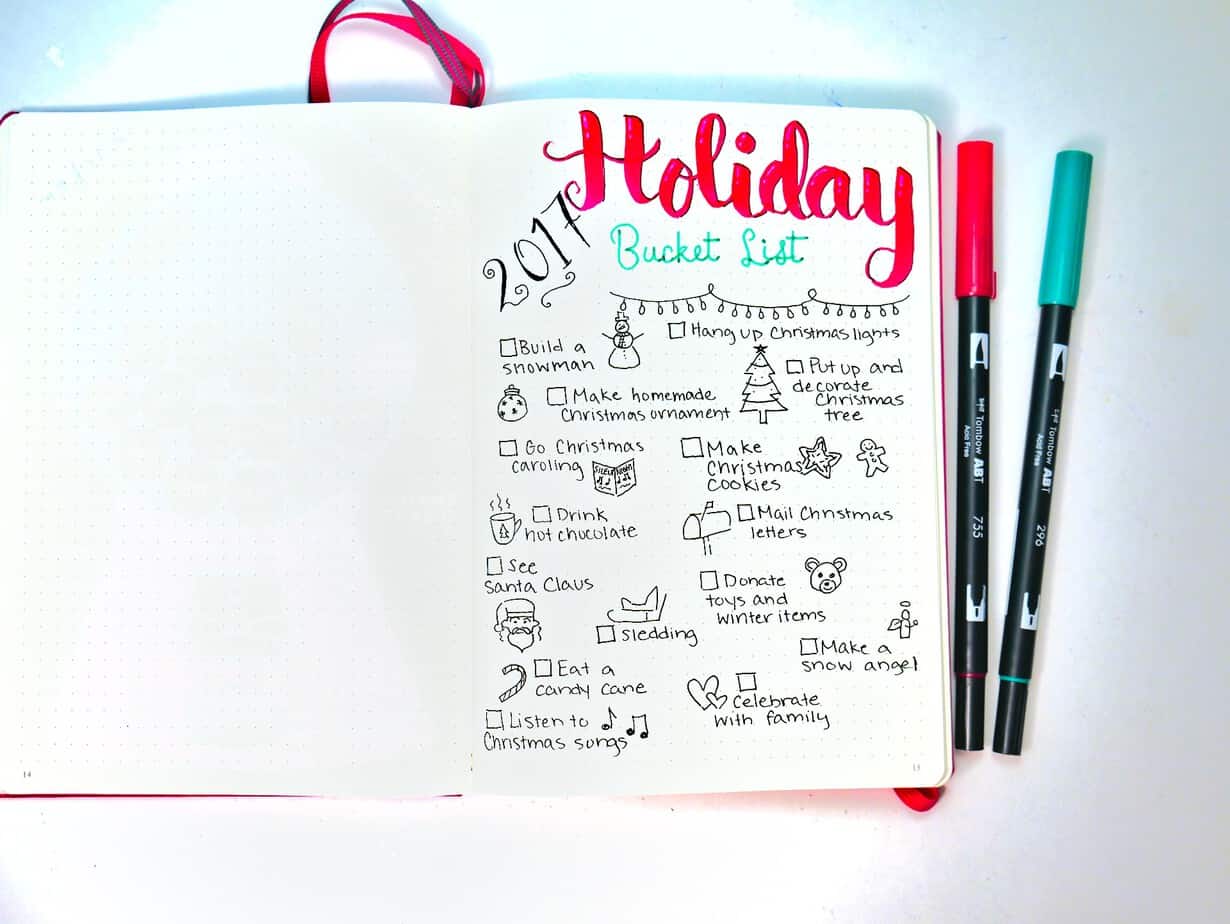 Holiday
2017
Bucket List
Build a
snowman
Hang up Christmas lights
Put up and
decorate
Christmas
tree
Make homemade
Christmas ornament
Go Christmas
caroling
Make
Christmas
cookies
Drink
hot chocolate
Mail Christmas
letters
See
Santa Claus
Donate
toys and
winter items
Sledding
Make a
snow angel
Eat a
candy cane
Celebrate
with family
Listen to
Christmas songs
14
15
Tombow ABT
Acid Free
755
Tombow ABT
Acid Free
296